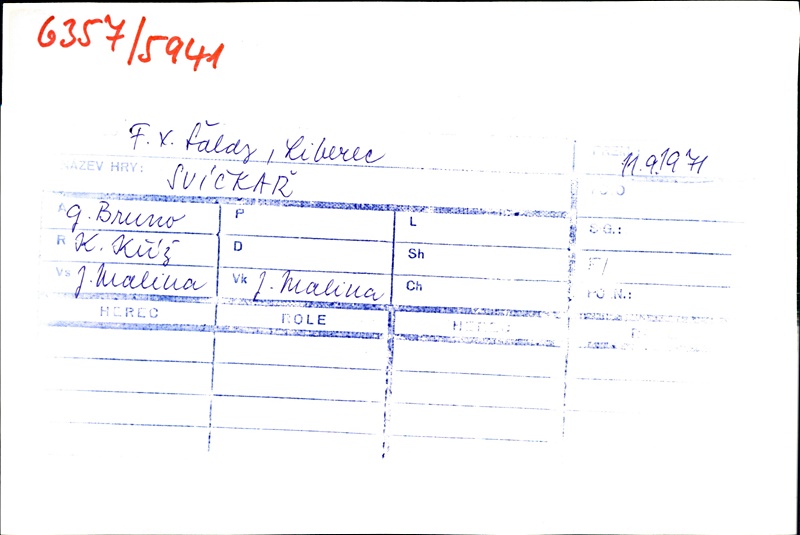 6357/5941
F. X. Šaldy, Liberec
11.9.1971
NÁZEV HRY: SVÍČKAŘ
A G. Bruno P L SG.:
R K. Kříž D Sh
Vs J. Malina Vk J. Malina Ch
HEREC ROLE HEREC